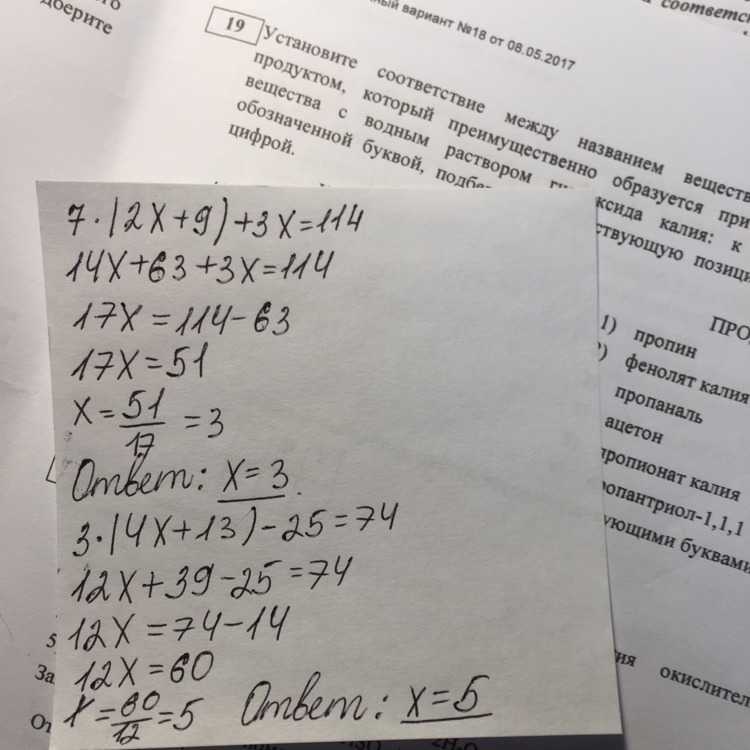 доерите
соответс
ный вариант №18 от 08.05.2017
19
Установите соответствие между названием веществ
продуктом, который преимущественно образуется при
вещества с водным раствором ги
ксида калия: к
обозначенной буквой, подбе
ствующую позици
цифрой.
7·(2x+9)+3x=114
14x+63+3x=114
17x=114-63
17x=51
x=51/17=3
Ответ: x=3.
3·(4x+13)-25=74
12x+39-25=74
12x=74-14
12x=60
x=60/12=5 Ответ: x=5
ПРО
1) пропин
) фенолят калия
пропаналь
ацетон
пропионат калия
опантриол-1,1,1
ующими буквами
5
За
ия окислител
От